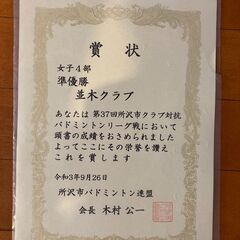 賞状
女子4部
準優勝
並木クラブ
あなたは第37回所沢市クラブ対抗
バドミントンリーグ戦において
頭書の成績をおさめられました
よってここにその栄誉を讃え
これを賞します
令和3年9月26日
所沢市バドミントン連盟
会長 木村 公一